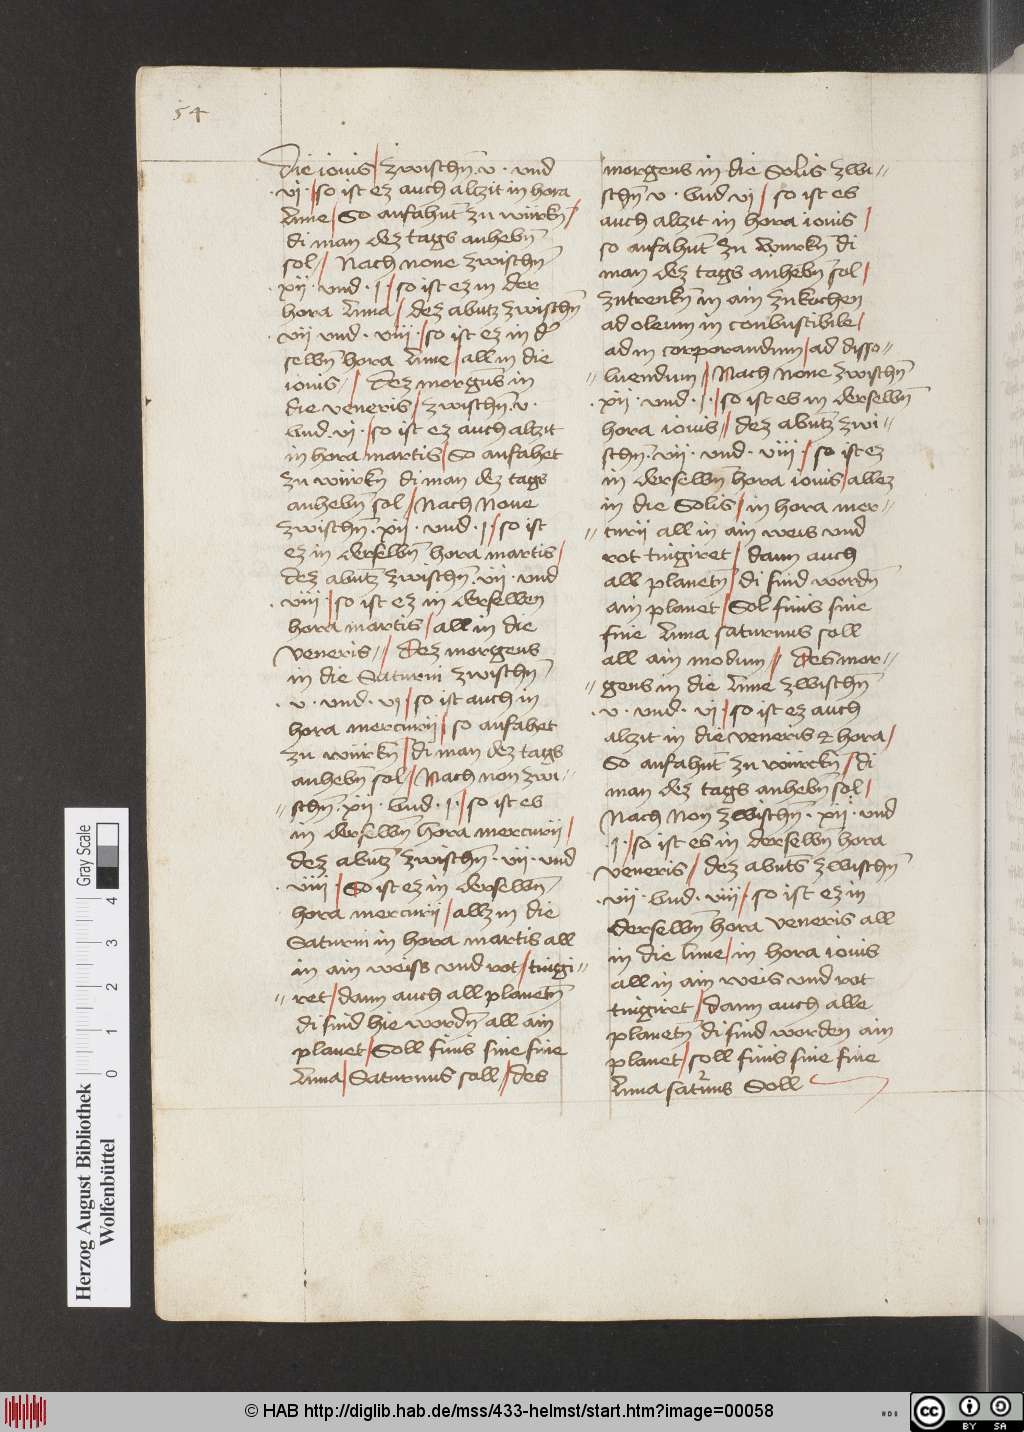 54
die iovis / zwischn̄ · v · vnd
· vj · / so ist ez auch alzit in hora
lune / So anfahnt zu würkn̄ /
di man dez tags anhebn̄
sol / Nach none zwischn̄
· xij · vnd · j · / so ist ez in der
hora luna / dez abutz zwischn̄
· vij vnd · viij · / so ist ez in d'
selbn̄ hora lune / all in die
iovis / dez morgens in
die veneris / zwischn̄ · v ·
vnd · vj · / so ist ez auch alzit
in hora martis / So anfahet
zu würkn̄ di man dez tags
anhebn̄ sol / Nach None
zwischn̄ · xij · vnd · j · / so ist
ez in derselbn̄ hora martis /
dez abutz zwischn̄ · vij · vnd
· viij / so ist ez in derselben
hora martis / all in die
veneris // dez morgens
in die Saturni zwischn̄
· v · vnd · vj / so ist auch in
hora mercurij / so anfahet
zu würkn̄ / di man dez tags
anhebn̄ sol / Nach non zwi //
// schn̄ · xij · vnd · j · / so ist es
in derselbn̄ hora mercurij /
dez abutz zwischn̄ · vij · vnd
· viij / So ist ez in derselbn̄
hora mercurij / allz in die
Saturni in hora martis all
in ain weiss vnd rot / tingi //
// ret / dann auch all planetn̄
di sind hie wordn̄ all ain
planet / Soll finis sine fine
luna / Saturnus soll / des
morgens in die Solis zwi //
schn̄ v · vnd vj / so ist es
auch alzit in hora iovis /
so anfahnt zu würkn̄ di
man dez tags anhebn̄ sol /
zutrenkn̄ in ain zukochen
ad oleum in conbustibile /
ad in corporandum / ad disso //
// luendum / Nach None zwischn̄
· xij · vnd · j · / so ist es in derselbn̄
hora iovis / dez abutz zwi //
schn̄ · vij · vnd · viij · / so ist ez
in derselbn̄ hora iovis / allez
in die Solis / in hora mer //
// curij all in ain weis vnd
rot tingiret / dann auch
all planetn̄ / di sind wordn̄
ain planet / Sol finis sine
fine luna saturnus soll
all ain modum // des mor //
// gens in die lune zwischn̄
· v · vnd · vj / so ist ez auch
alzit in die veneris & hora /
So anfahnt zu würckn̄ / di
man dez tags anhebn̄ sol /
Nach Non zwischn̄ · xij · vnd
· j · / so ist es in derselbn̄ hora
veneris / dez abuts zwischn̄
· vij · vnd · viij · / so ist ez in
derselbn̄ hora veneris all
in die lune / in hora iovis
all in ain weis vnd rot
tingiret / dann auch alle
planetn̄ di sind worden ain
planet / soll finis sine fine
luna saturnus Soll
Herzog August Bibliothek
Wolfenbüttel
0 1 2 3 4
Gray Scale
© HAB http://diglib.hab.de/mss/433-helmst/start.htm?image=00058
HAB
cc
BY SA